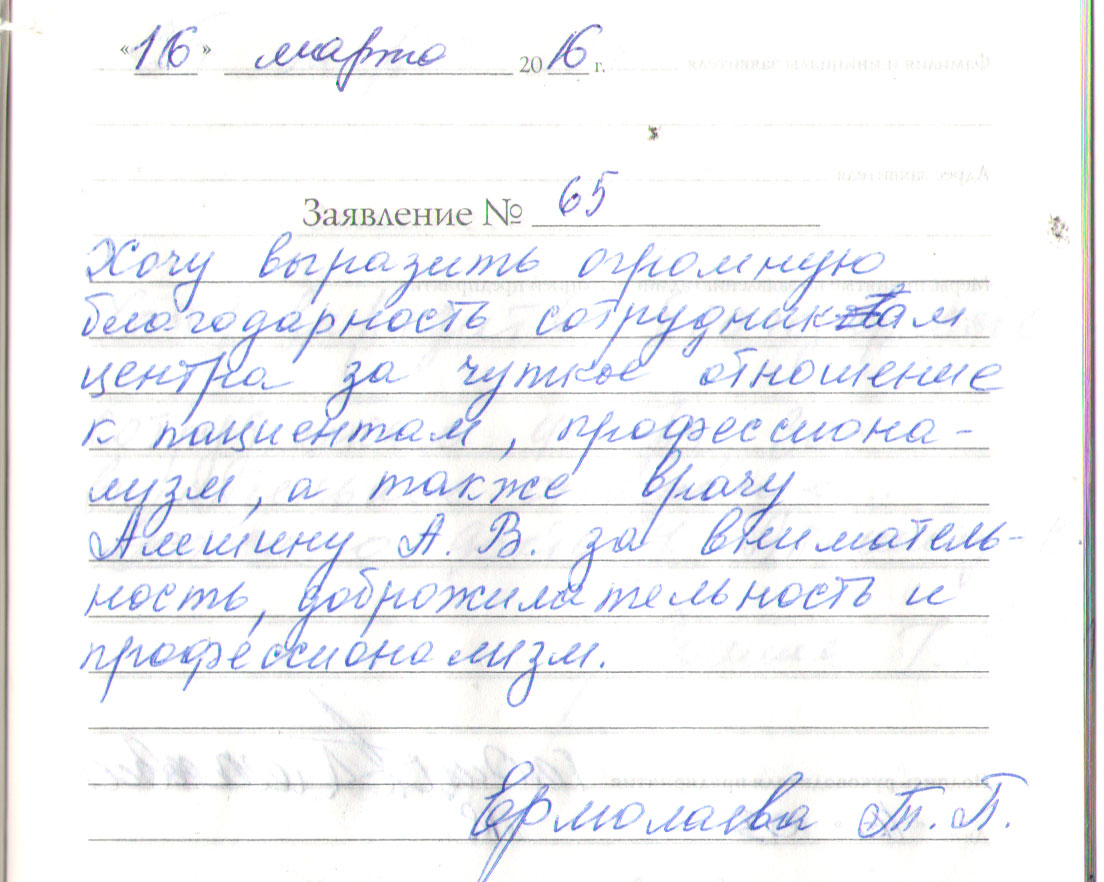 «16» марта 2016 г.
Заявление № 65
Хочу выразить огромную
благодарность сотрудникам
центра за чуткое отношение
к пациентам, профессиона-
лизм, а также врачу
Алешину А. В. за вниматель-
ность, доброжилательность и
профессионализм.
Ермолаева Т. П.